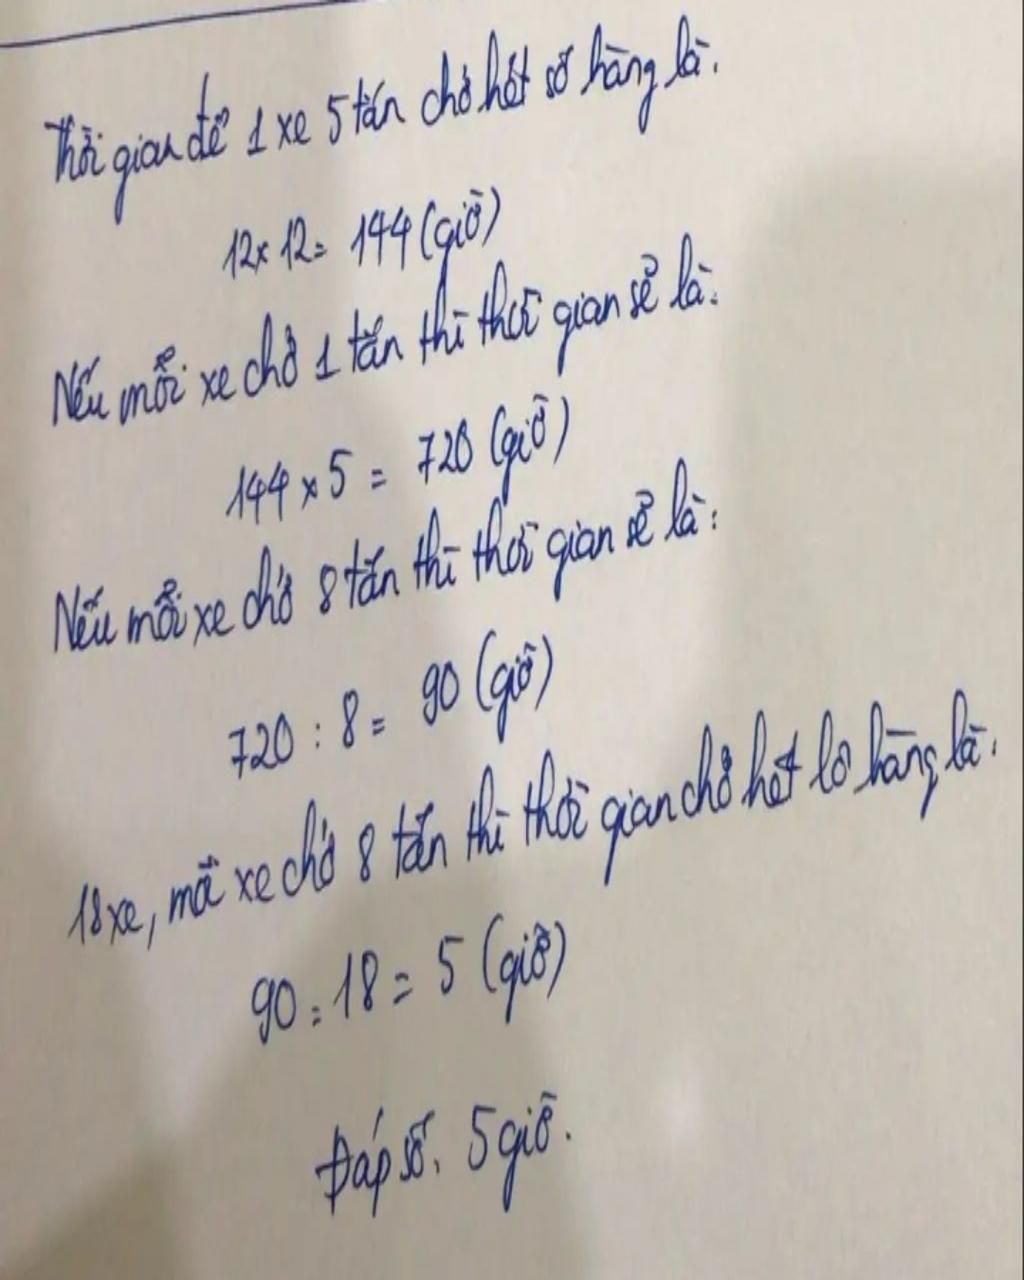 Thời gian để 1 xe 5 tấn chở hết số hàng là:
12 x 12 = 144 (giờ)
Nếu mỗi xe chở 1 tấn thì thời gian sẽ là:
144 x 5 = 720 (giờ)
Nếu mỗi xe chở 8 tấn thì thời gian sẽ là:
720 : 8 = 90 (giờ)
18 xe, mỗi xe chở 8 tấn thì thời gian chở hết lô hàng là:
90 : 18 = 5 (giờ)
Đáp số: 5 giờ.